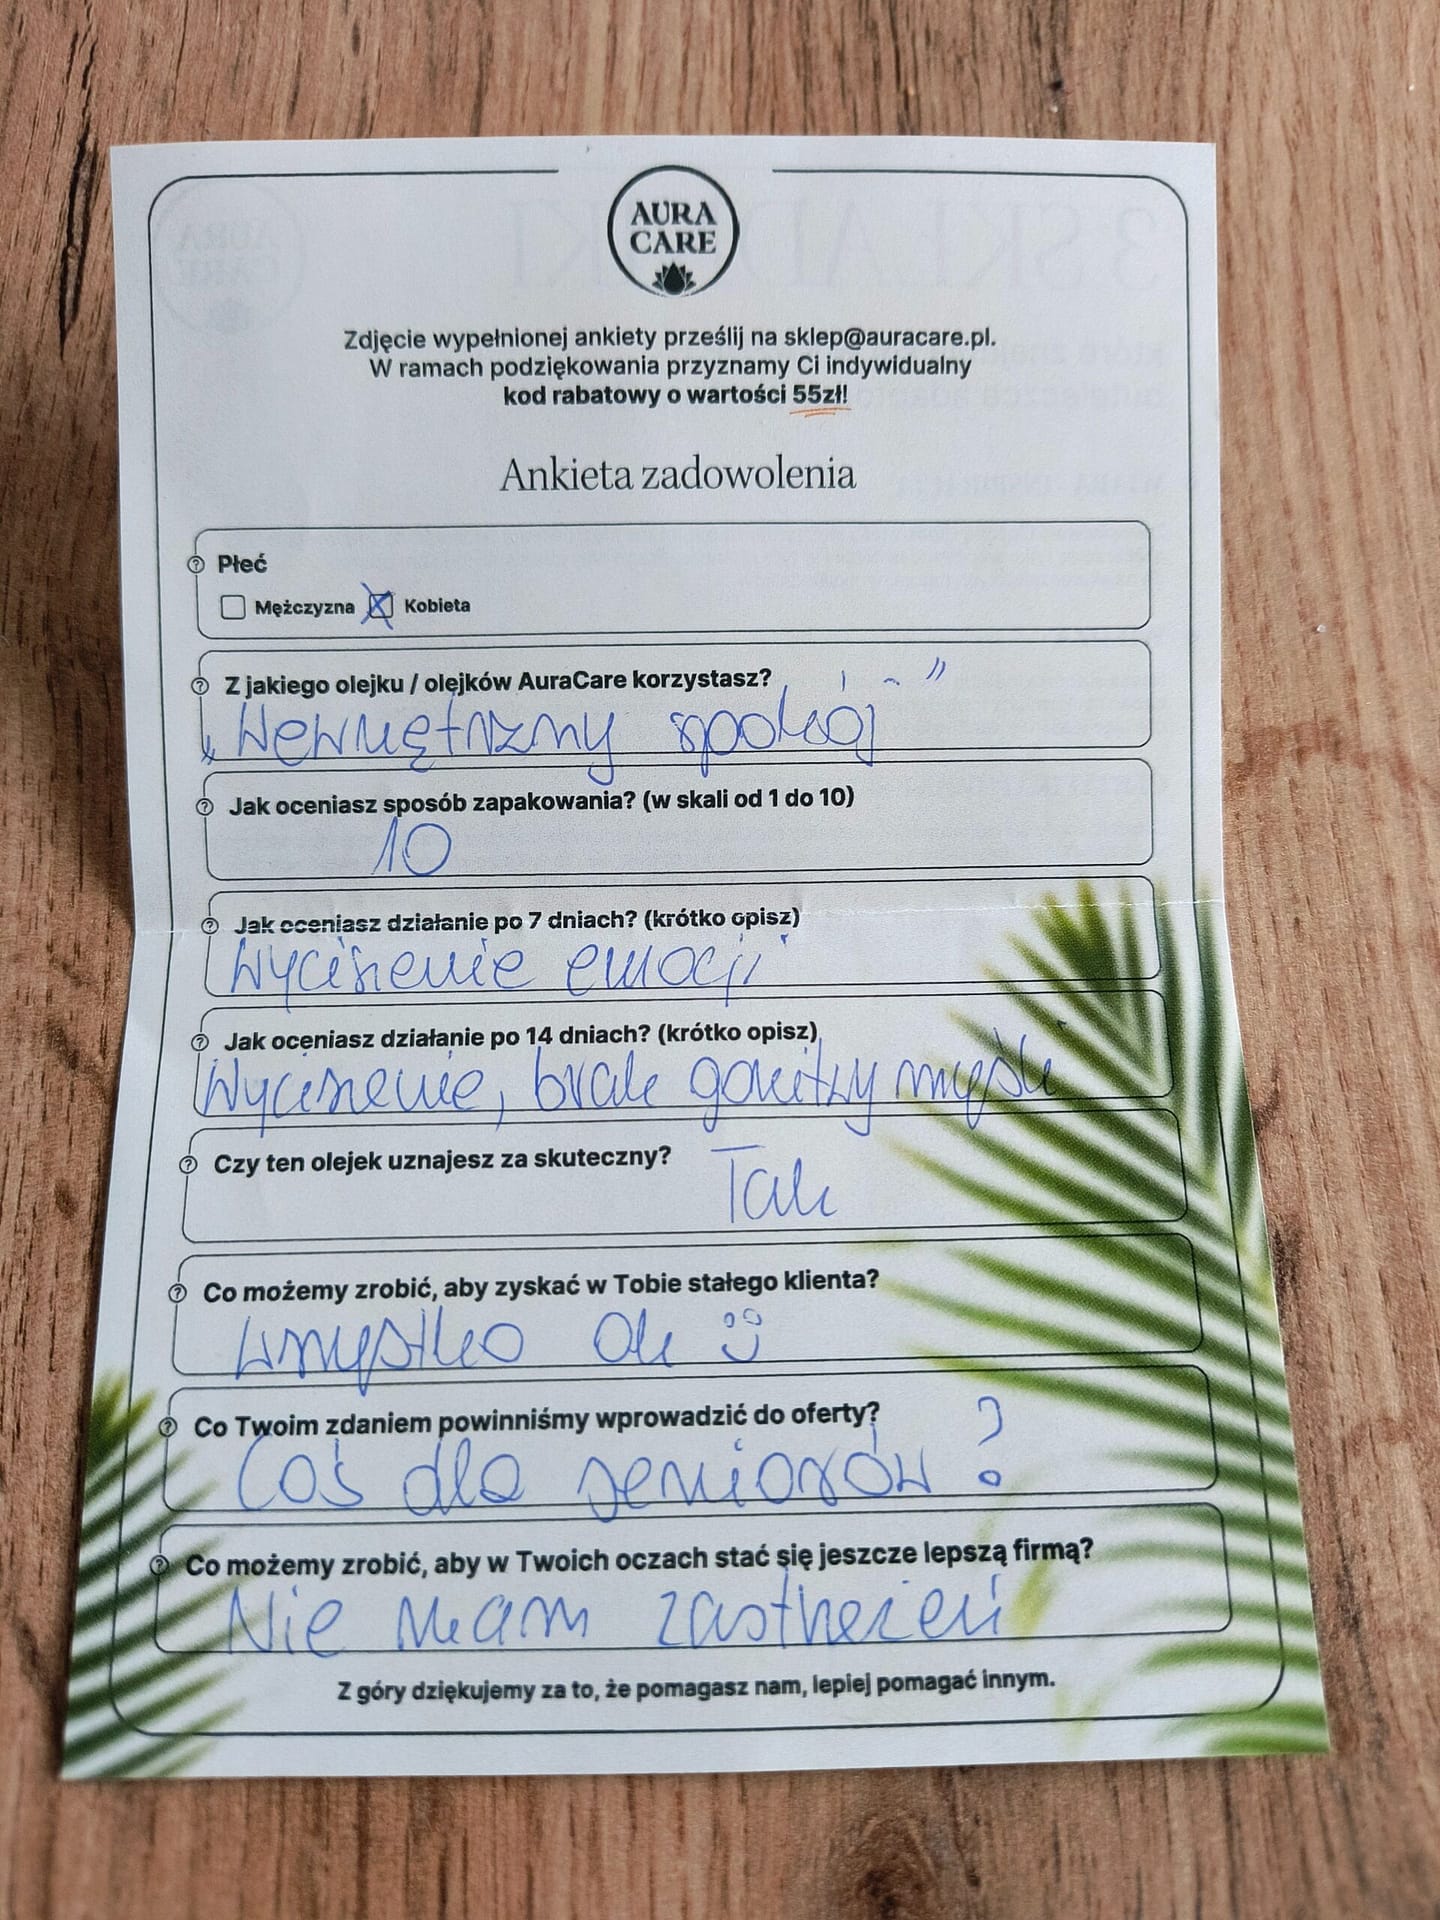 AURA
CARE
Zdjęcie wypełnionej ankiety prześlij na sklep@auracare.pl.
W ramach podziękowania przyznamy Ci indywidualny
kod rabatowy o wartości 55zł!
Ankieta zadowolenia
Płeć
Mężczyzna Kobieta
Z jakiego olejku / olejków AuraCare korzystasz?
„Wewnętrzny spokój"
Jak oceniasz sposób zapakowania? (w skali od 1 do 10)
10
Jak oceniasz działanie po 7 dniach? (krótko opisz)
Wyciszenie emocji
Jak oceniasz działanie po 14 dniach? (krótko opisz)
Wyciszenie, brak gonitwy myśli
Czy ten olejek uznajesz za skuteczny?
Tak
Co możemy zrobić, aby zyskać w Tobie stałego klienta?
Wszystko Ok :)
Co Twoim zdaniem powinniśmy wprowadzić do oferty?
Coś dla seniorów?
Co możemy zrobić, aby w Twoich oczach stać się jeszcze lepszą firmą?
Nie mam zastrzeżeń
Z góry dziękujemy za to, że pomagasz nam, lepiej pomagać innym.